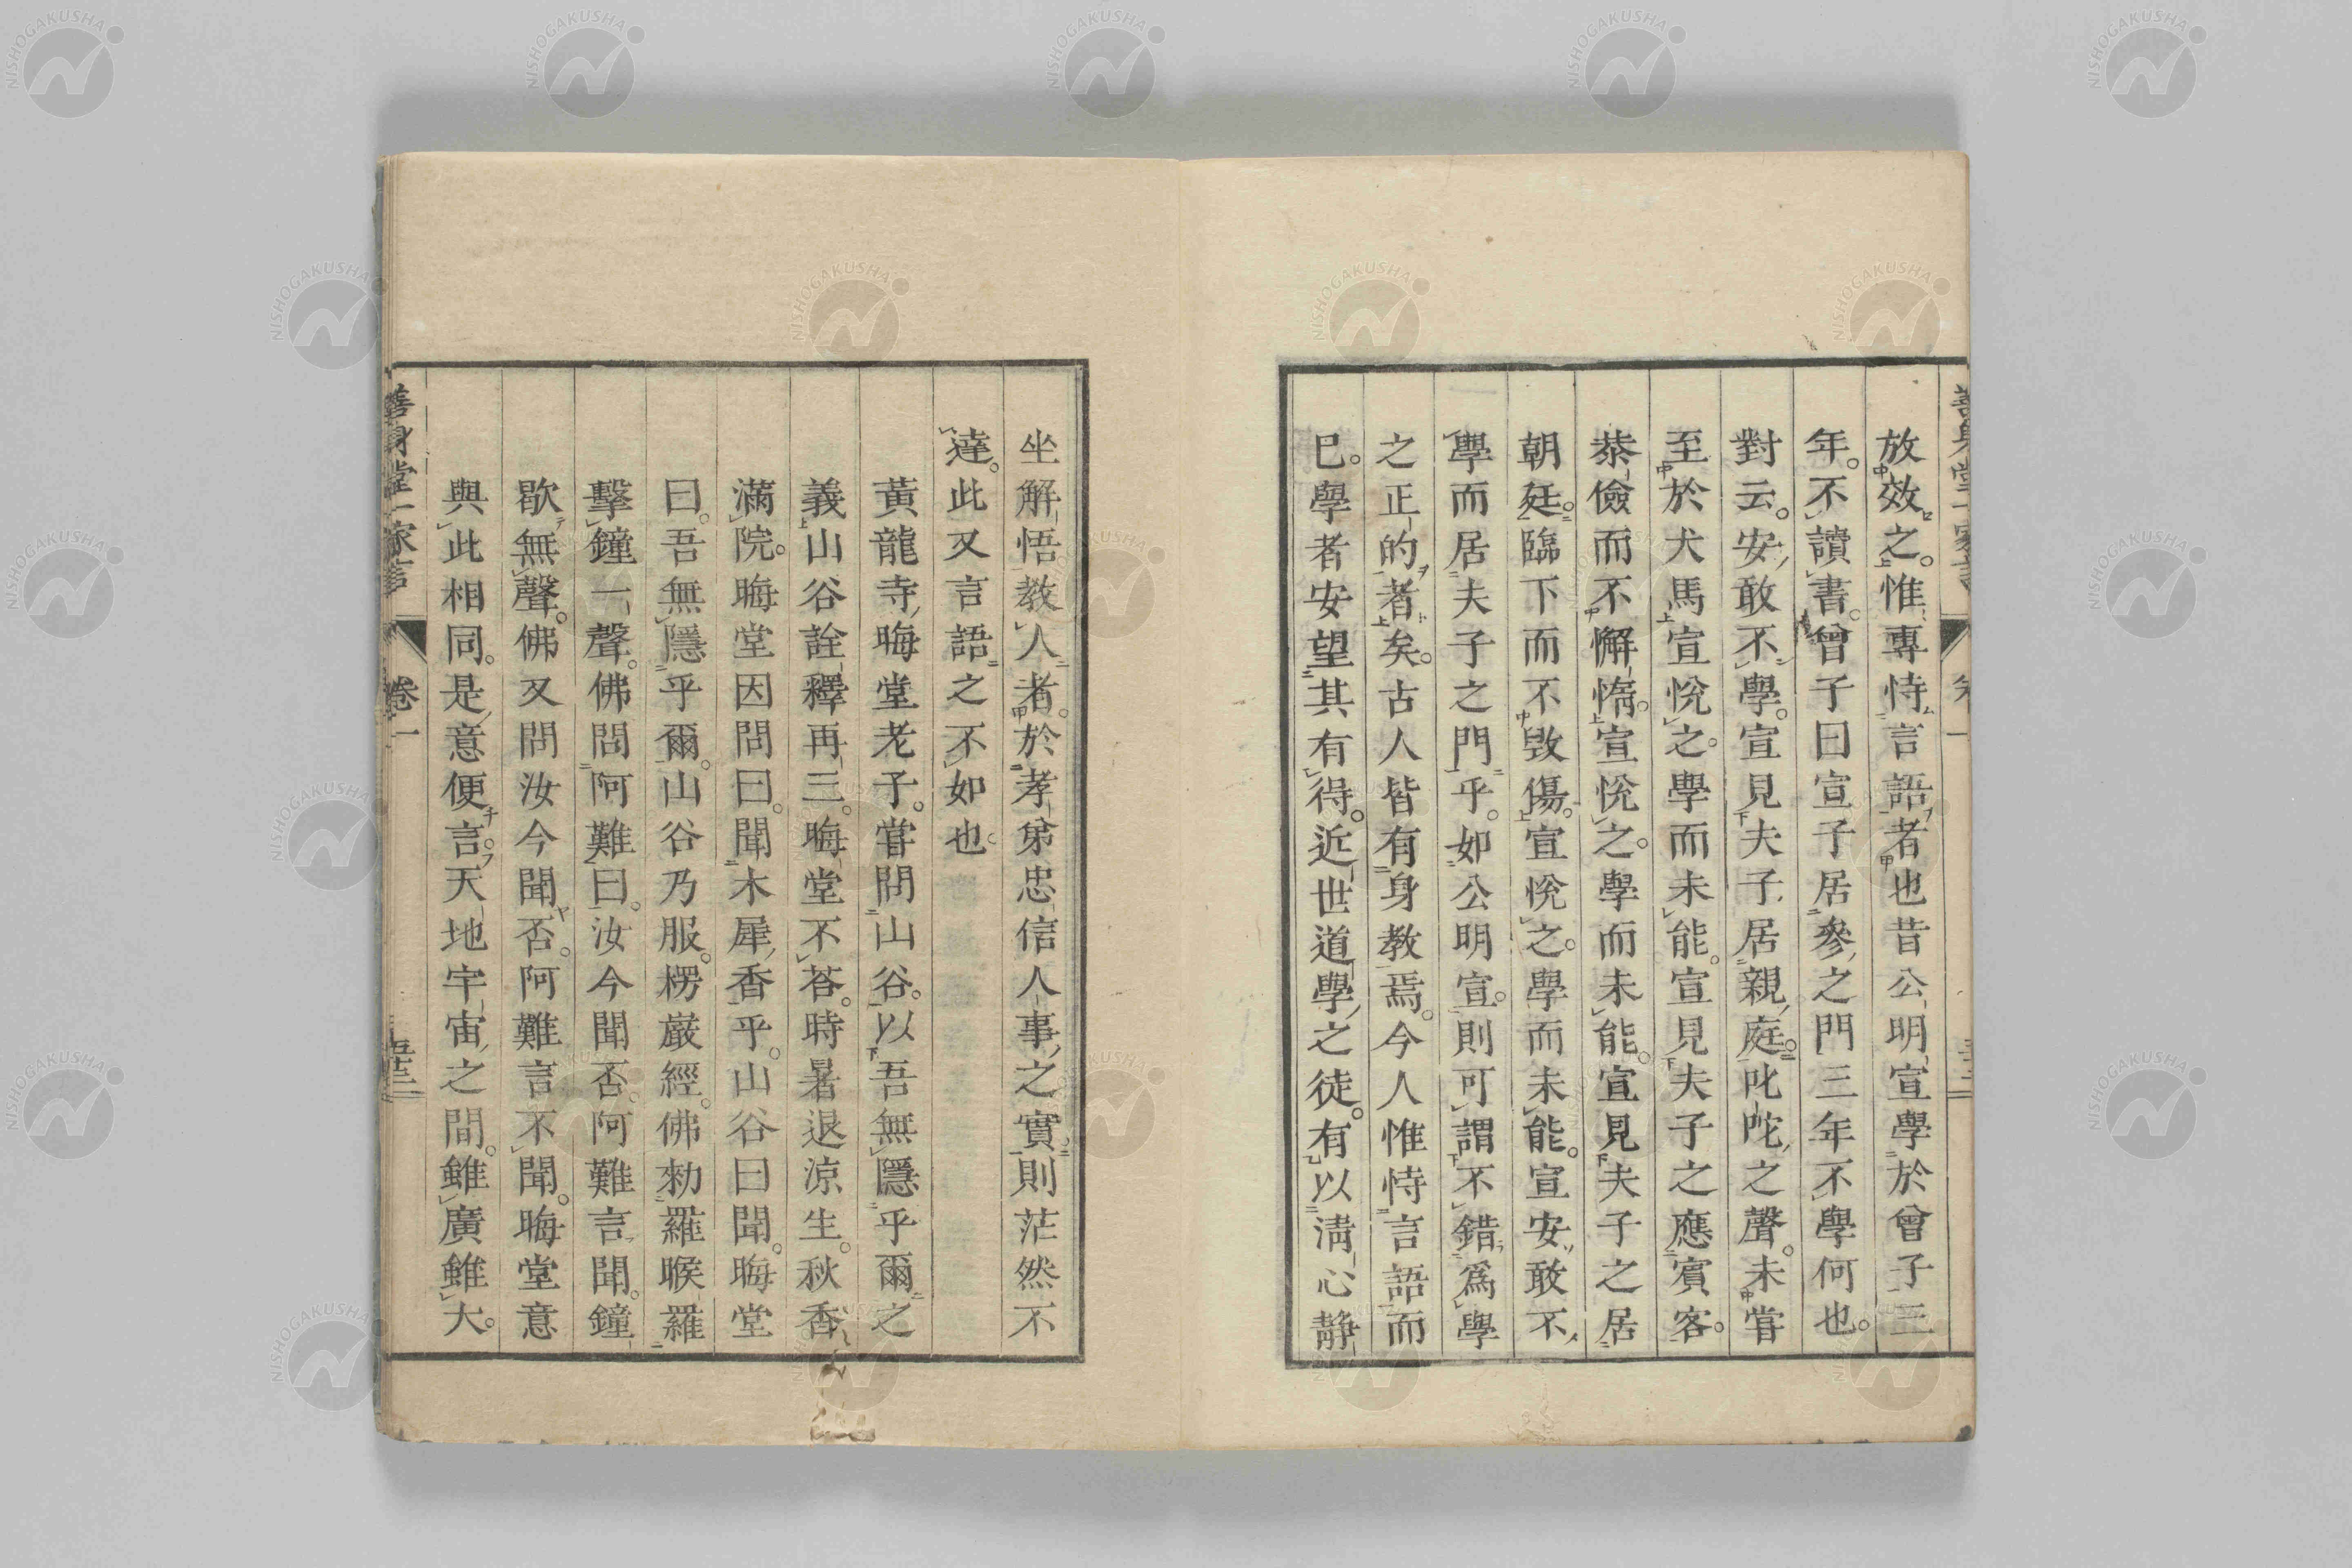 放效之。惟專恃言語者也昔公明宣學於曾子三
年。不讀書。曾子曰宣子居參之門三年不學何也。
對云。安敢不學。宣見夫子居親庭。叱咤之聲。未嘗
至於犬馬宣悅之。學而未能。宣見夫子之應賓客。
恭儉而不懈惰。宣悅之。學而未能。宣見夫子之居
朝廷。臨下而不毀傷。宣悅之。學而未能。宣安敢不
學而居夫子之門乎。如公明宣。則可謂不錯爲學
之正的者矣。古人皆有身教焉。今人惟恃言語而
已。學者安望其有得。近世道學之徒。有以淸心靜
坐解悟教人者。於孝弟忠信人事之實則茫然不
達。此又言語之不如也。
黃龍寺晦堂老子。嘗問山谷。以吾無隱乎爾之
義山谷詮釋再三。晦堂不荅。時暑退凉生。秋香
滿院。晦堂因問曰。聞木犀香乎。山谷曰聞。晦堂
曰。吾無隱乎爾。山谷乃服。楞嚴經。佛勑羅睺羅
擊鐘一聲。佛問阿難曰。汝今聞否。阿難言聞。鐘
歇無聲。佛又問汝今聞否。阿難言不聞。晦堂意
與此相同。是意便言。天地宇宙之間。雖廣雖大。
善身堂一家言 卷一
NISHOGAKUSHA